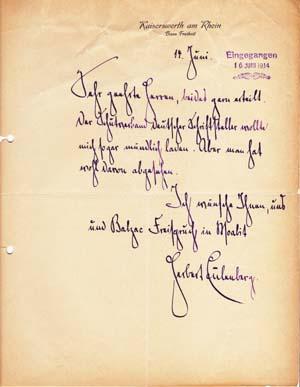 Kaiserswerth am Rhein
Haus Freiheit
14. Juni.
Eingegangen
16 JUNI 1914
Sehr geehrte Herren, beides gern erteilt.
Der Schutzverband Deutscher Schriftsteller wollte
mich sogar mündlich laden. Aber man hat
wohl davon abgesehen.
Ich wünsche Ihnen, uns
und Balzac Freispruch in Moabit
Herbert Eulenberg.